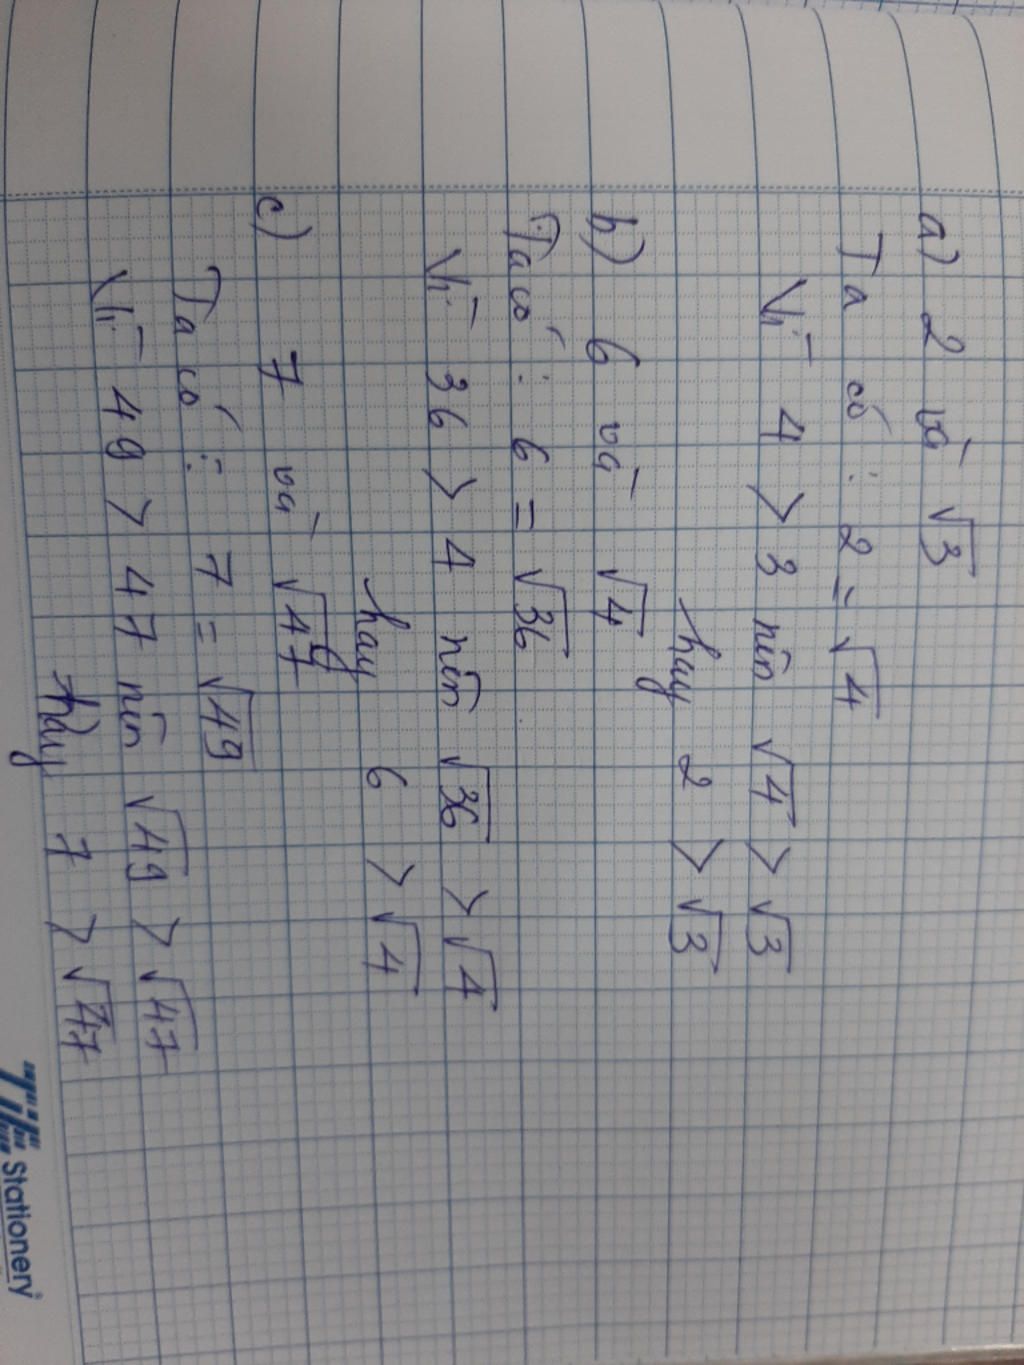 a) 2 và √3
Ta có : 2 = √4
Vì 4 > 3 nên √4 > √3
hay 2 > √3
b) 6 và √4
Ta có : 6 = √36
Vì 36 > 4 nên √36 > √4
hay 6 > √4
c) 7 và √47
Ta có : 7 = √49
Vì 49 > 47 nên √49 > √47
hay 7 > √47
TiE Stationery